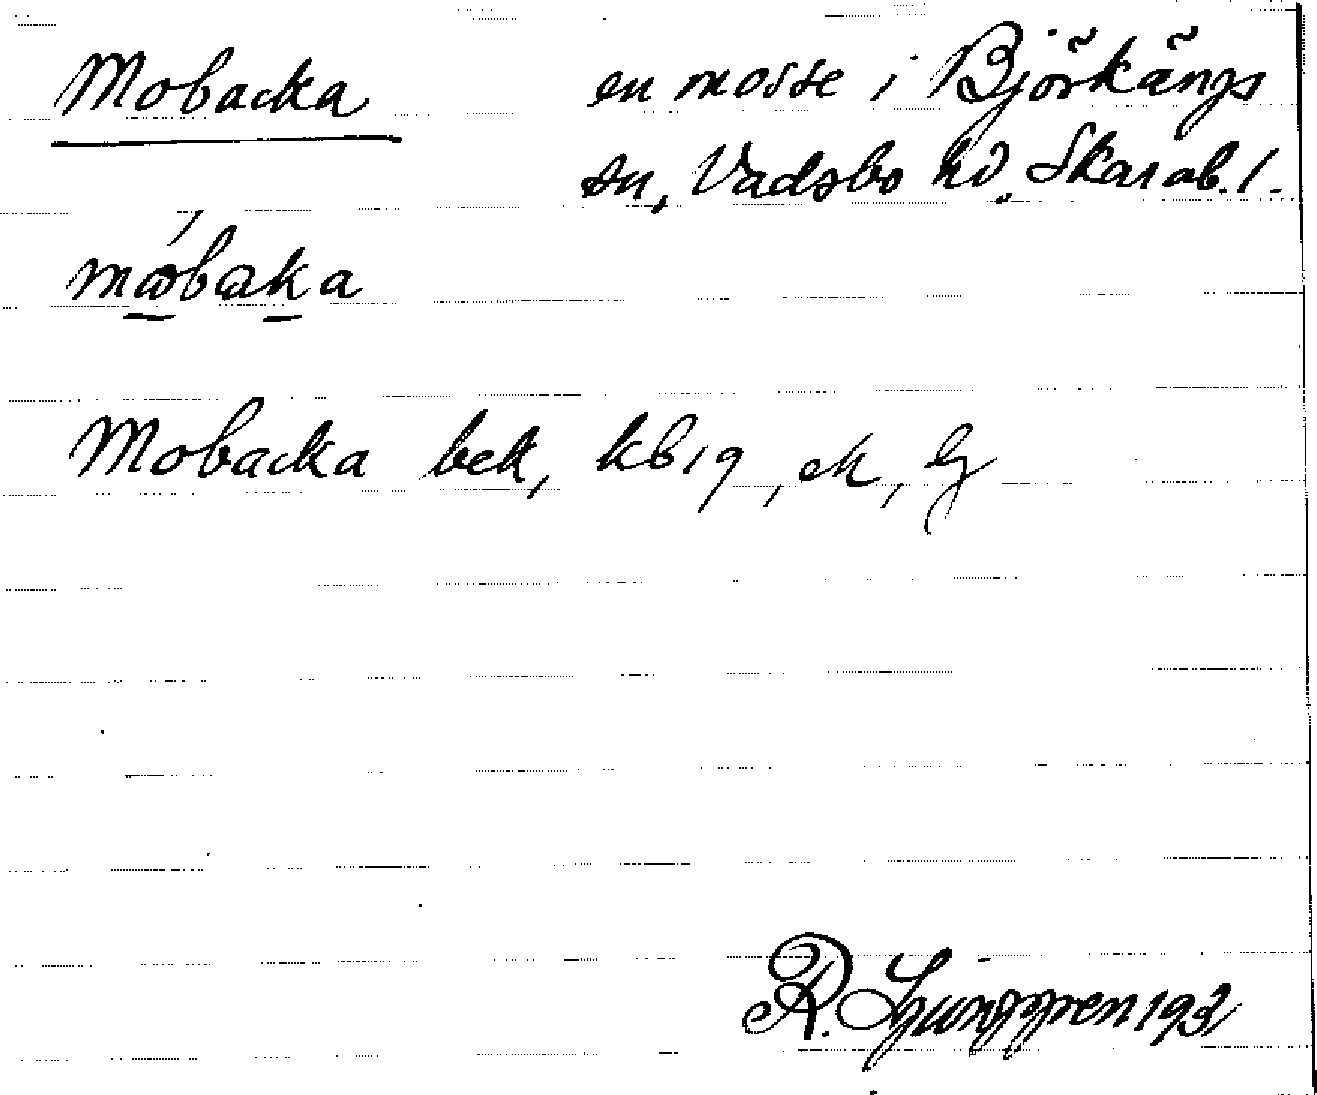 Mobacka en mosse i Björkängs
sn, Vadsbo hd. Skarab. l.
mobaka
Mobacka bek, kb19, ek, lg
R. Ljunggren 1932